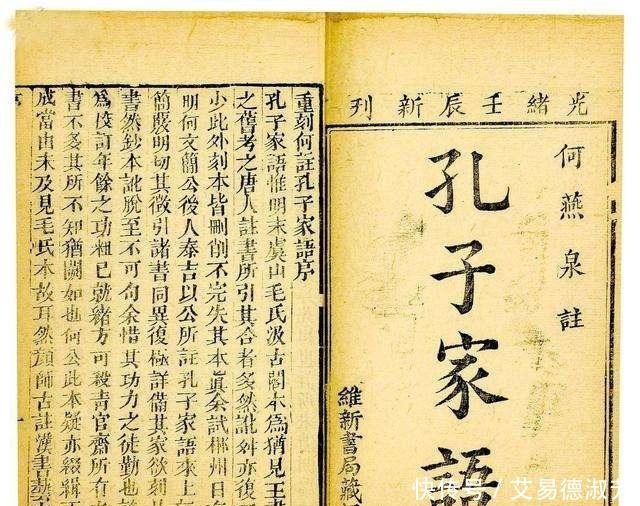 光緒壬辰新刊
何燕泉註
孔子家語
維新書局藏
重刻何註孔子家語序
孔子家語惟明末虞山毛氏汲古閣本為猶見王書
之舊考之唐人註書所引其合者多然訛舛亦復
少此外刻本皆刪削不完失其本眞余試郴州日
明何文簡公後人泰吉以公所註孔子家語來上
簡嚴明切其徵引諸書同異復極詳備其家欲刻
書然鈔本訛脫至不可句余惜其功力之徒勤也
為校訂年餘之功粗已就緒方可殺青官齋所有
書不多其所不知猶闕如也何公此本疑亦綴緝
成當由未及見毛氏本故耳然顏師古註漢書藝
序
一
快传号/艾易德淑